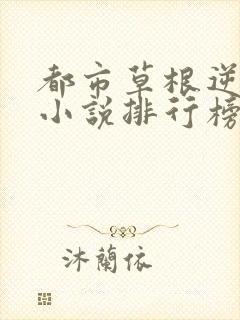 都市草根逆
小說排行榜
沐蘭依